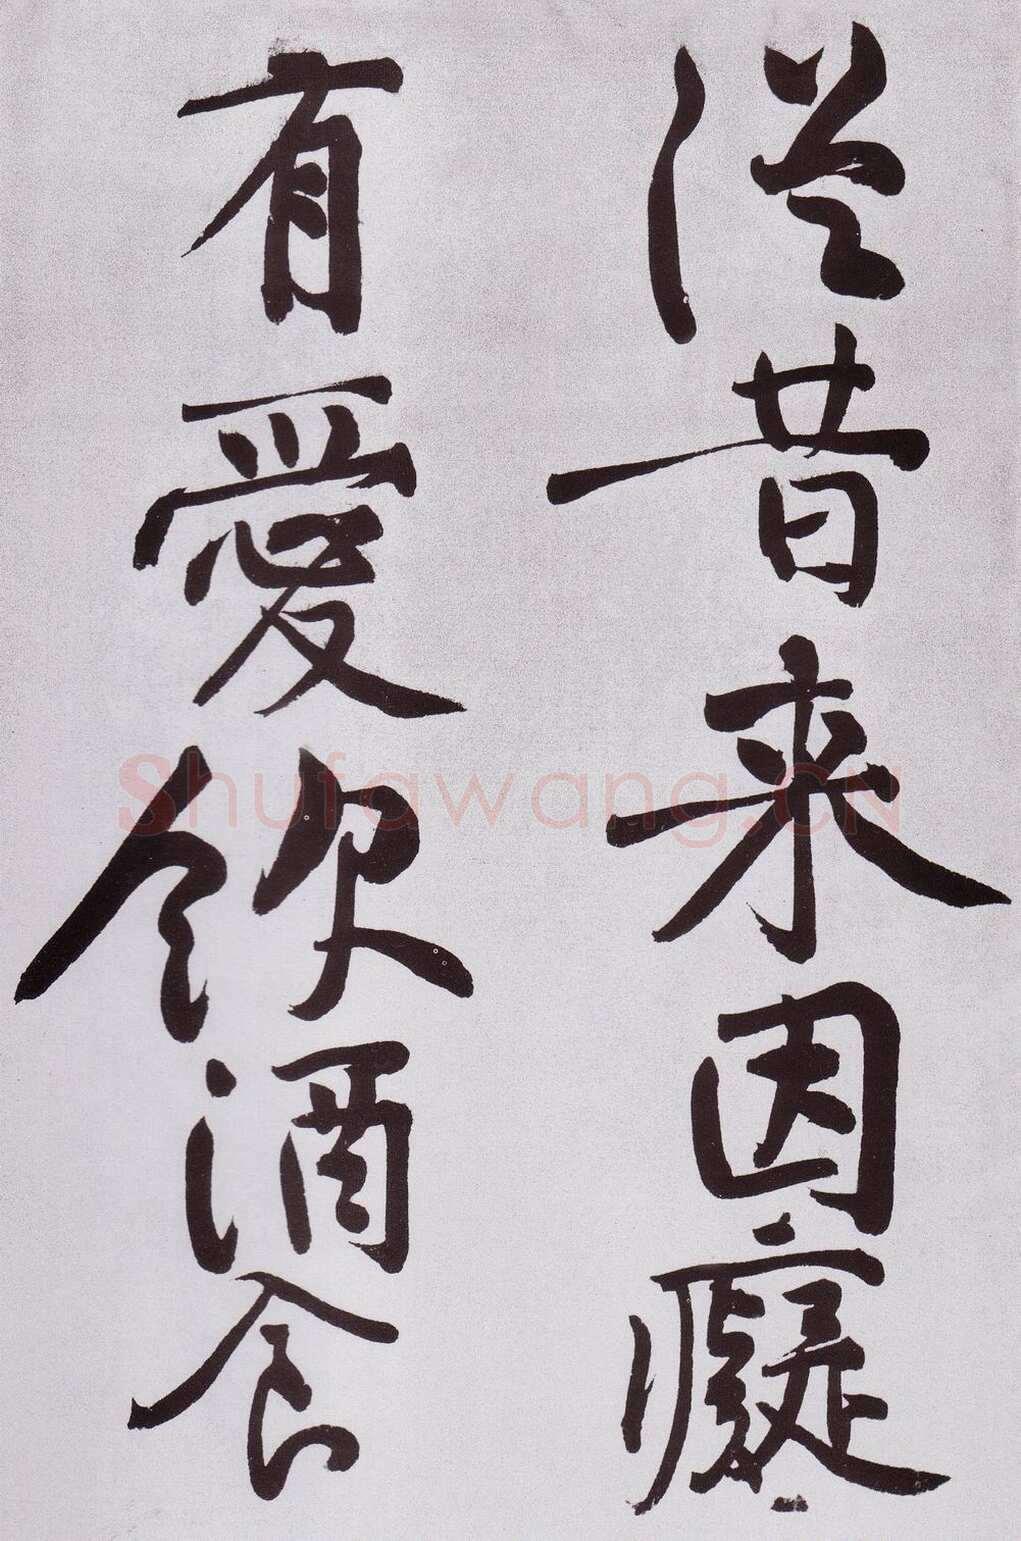 從昔來因癡
有愛飲酒食
Shufawang.CN